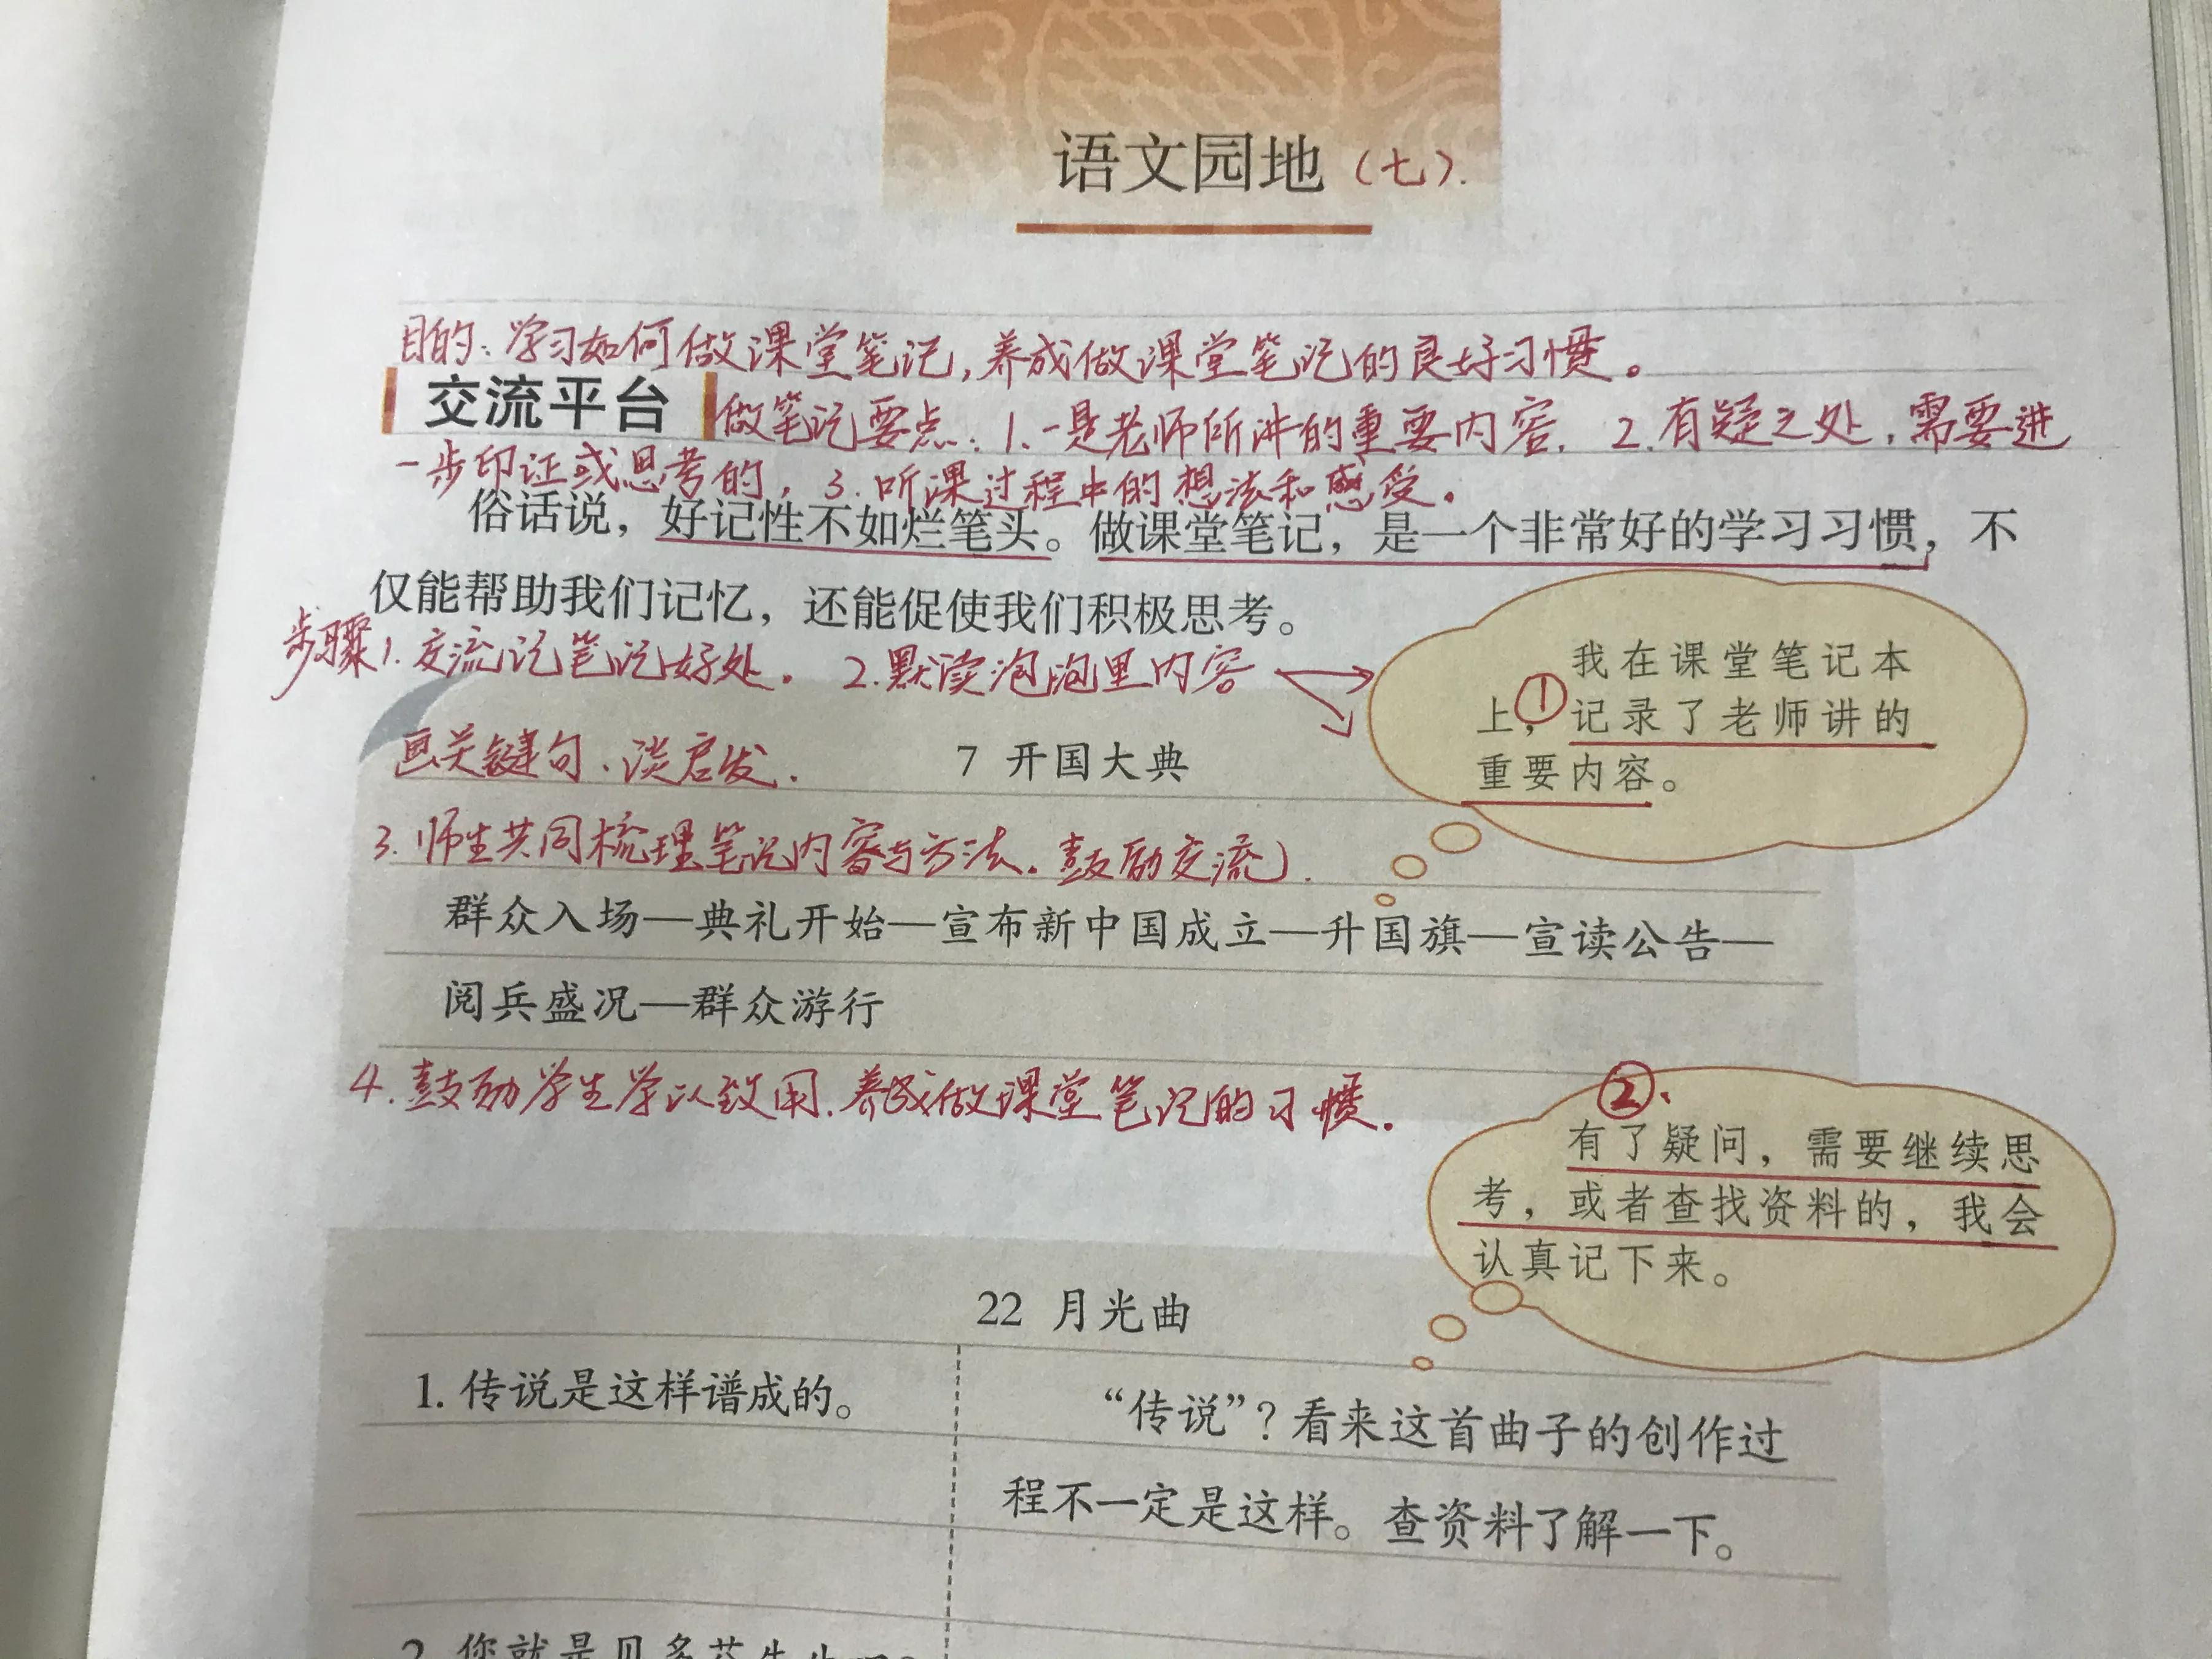 语文园地（七）.
目的：学习如何做课堂笔记，养成做课堂笔记的良好习惯。
交流平台
做笔记要点：1.一是老师所讲的重要内容. 2.有疑之处，需要进
一步印证或思考的，3.听课过程中的想法和感受。
俗话说，好记性不如烂笔头。做课堂笔记，是一个非常好的学习习惯，不
仅能帮助我们记忆，还能促使我们积极思考。
步骤1.交流记笔记好处。2.默读泡泡里内容
画关键句、谈启发.
我在课堂笔记本
上，①记录了老师讲的
重要内容。
7 开国大典
3.师生共同梳理笔记内容与方法。鼓励交流）.
群众入场—典礼开始—宣布新中国成立—升国旗—宣读公告—
阅兵盛况—群众游行
4.鼓励学生学以致用.养成做课堂笔记的习惯.
②、
有了疑问，需要继续思
考，或者查找资料的，我会
认真记下来。
22 月光曲
1.传说是这样谱成的。
“传说”？看来这首曲子的创作过
程不一定是这样。查资料了解一下。
2.您就是贝多芬先生吧？